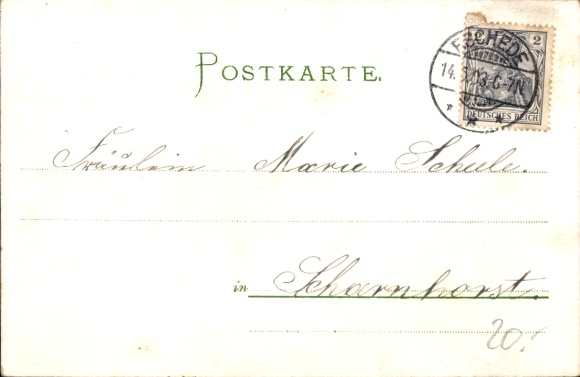 POSTKARTE.
2
ESCHEDE
14.3.03.6-7N.
DEUTSCHES REICH
Fräulein Marie Schule.
in Scharnhorst.
20.